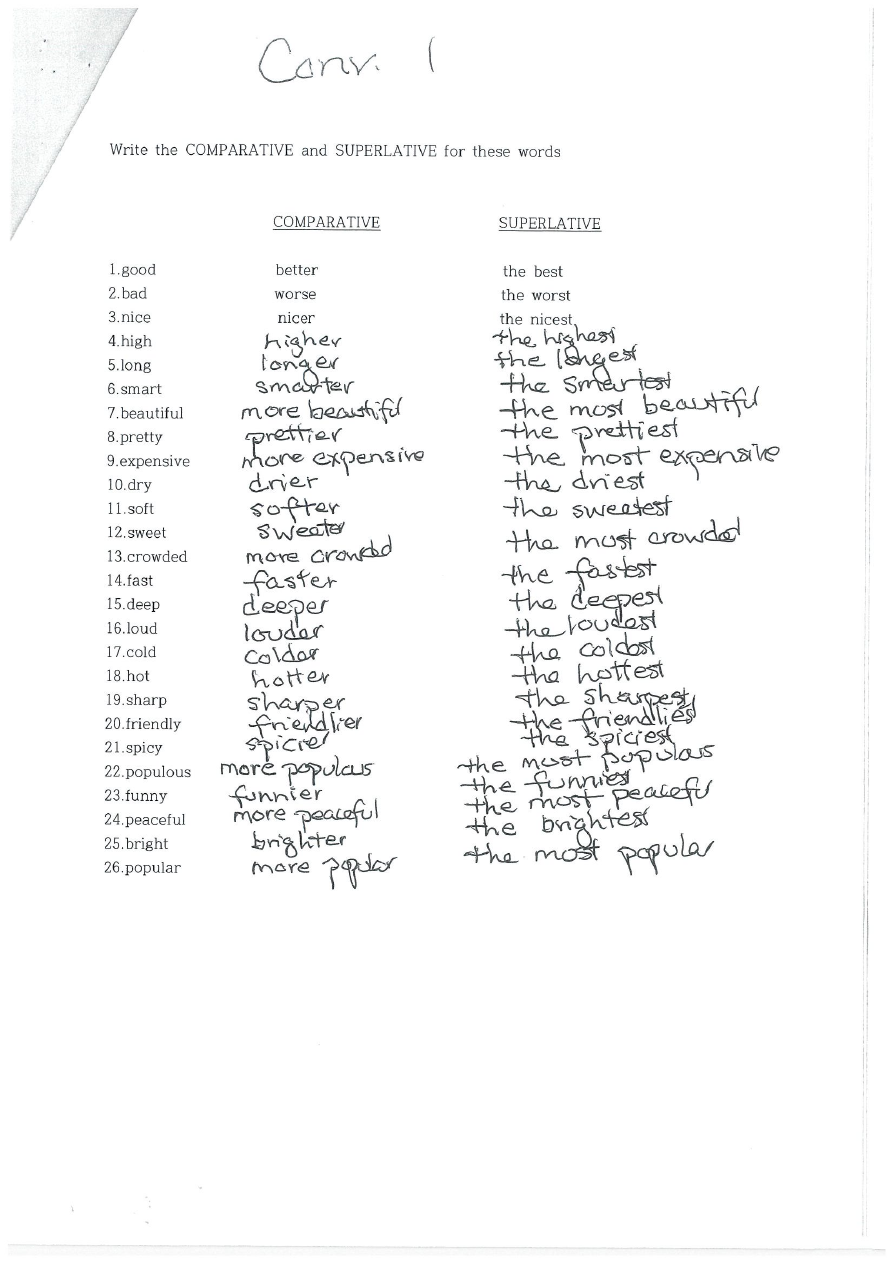 Conv. 1
Write the COMPARATIVE and SUPERLATIVE for these words
COMPARATIVE SUPERLATIVE
1.good better the best
2.bad worse the worst
3.nice nicer the nicest
4.high higher the highest
5.long longer the longest
6.smart smarter the smartest
7.beautiful more beautiful the most beautiful
8.pretty prettier the prettiest
9.expensive more expensive the most expensive
10.dry drier the driest
11.soft softer the sweetest
12.sweet sweeter
13.crowded more crowded the most crowded
14.fast faster the fastest
15.deep deeper the deepest
16.loud louder the loudest
17.cold colder the coldest
18.hot hotter the hottest
19.sharp sharper the sharpest
20.friendly friendlier the friendlies
21.spicy spicier the spiciest
22.populous more populous the most populous
23.funny funnier the funnies
24.peaceful more peaceful the most peaceful
25.bright brighter the brightest
26.popular more popular the most popular